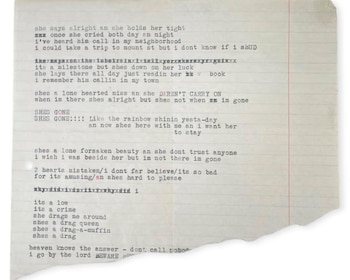 she says alright an she holds her tight
xxx once she cried both day an night
i've heard him call in my neighborhood
i could take a trip to mount st but i dont know if i sHUD
its a milestone but shes down on her luck
she lays there all day just readin her book
i remember his callin in my town
shes a lone hearted miss an she DAREN'T CARRY ON
when im there shes alright but shes not when im gone
SHES GONE
SHES GONE!!!! Like the rainbow shinin yesta-day
an now shes here with me an i want her
to stay
shes a lone forsaken beauty an she dont trust anyone
i wish i was beside her but im not there im gone
2 hearts mistaken/i dont far believe/its so bad
for its amusing/an shes hard to please
its a low
its a crime
she drags me around
shes a drag queen
shes a drag-a-muffin
shes a drag
heaven knows the answer - dont call nobody
i go by the lord BEWARE